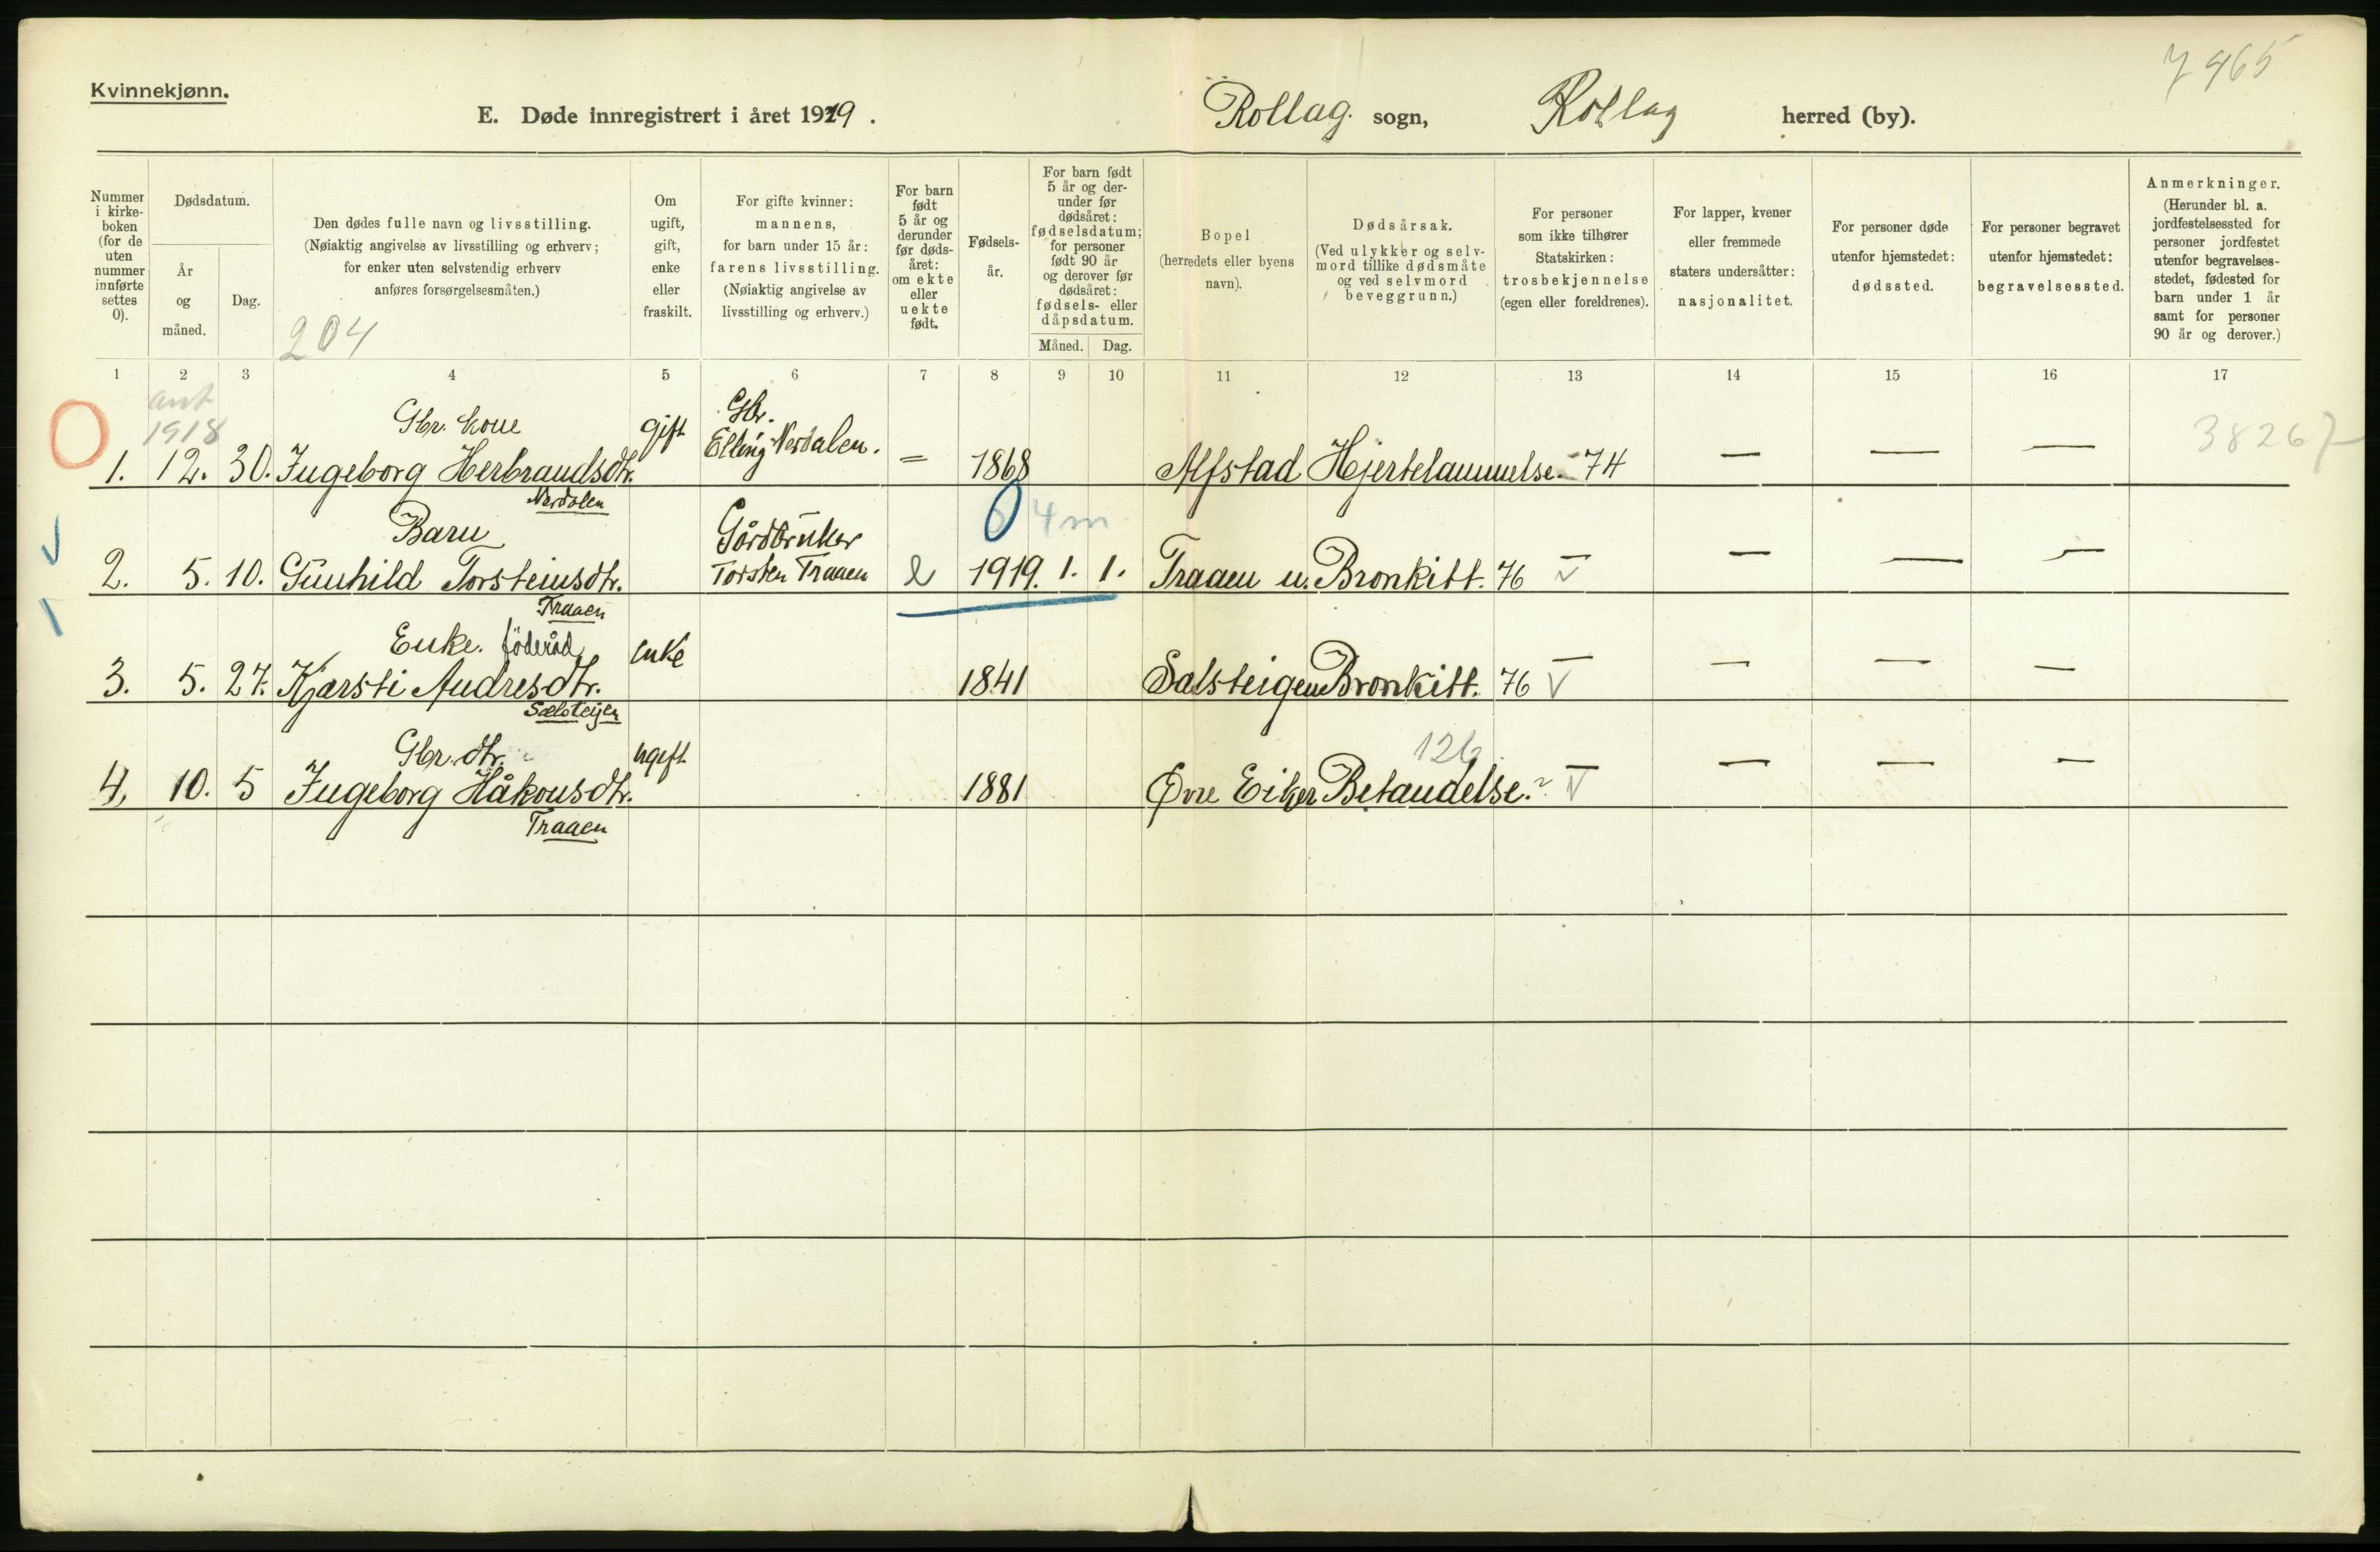 7965
Kvinnekjønn.
E. Døde innregistrert i året 1919.
Rollag sogn, Rollag herred (by).
Nummer i kirkeboken (for de uten nummer innførte settes 0).
Dødsdatum.
År og måned.
Dag.
Den dødes fulle navn og livsstilling. (Nøiaktig angivelse av livsstilling og erhverv; for enker uten selvstendig erhverv anføres forsørgelsesmåten.)
204
Om ugift, gift, enke eller fraskilt.
For gifte kvinner: mannens, for barn under 15 år: farens livsstilling. (Nøiaktig angivelse av livsstilling og erhverv.)
For barn født 5 år og derunder før dødsåret: om ekte eller uekte født.
Fødselsår.
For barn født 5 år og derunder før dødsåret: fødselsdatum; for personer født 90 år og derover før dødsåret: fødsels- eller dåpsdatum.
Måned. Dag.
Bopel (herredets eller byens navn).
Dødsårsak. (Ved ulykker og selvmord tillike dødsmåte og ved selvmord beveggrunn.)
For personer som ikke tilhører Statskirken: trosbekjennelse (egen eller foreldrenes).
For lapper, kvener eller fremmede staters undersåtter: nasjonalitet.
For personer døde utenfor hjemstedet: dødssted.
For personer begravet utenfor hjemstedet: begravelsessted.
Anmerkninger. (Herunder bl. a. jordfestelsessted for personer jordfestet utenfor begravelsesstedet, fødested for barn under 1 år samt for personer 90 år og derover.)
1 2 3 4 5 6 7 8 9 10 11 12 13 14 15 16 17
ant
1918
Gbr. kone gift Gbr.
Elling Nerdalen.
38267
1. 12. 30. Ingeborg Herbrandsdtr. = 1868 Alfstad Hjertelammelse. 74 — — —
Nerdalen
0 4m
Barn Gårdbruker
2. 5. 10. Gunhild Torsteinsdtr. Torsten Traaen e 1919. 1. 1. Traaen u. Bronkitt. 76 — — — —
Traaen
Enke. föderåd enke
3. 5. 27. Kjersti Andresdtr. 1841 Salsteigen Bronkitt. 76 — — — —
Sælsteijen
Gbr. dtr. ugift 126
4. 10. 5 Ingeborg Håkonsdtr. 1881 Øvre Eiker Betændelse. ? — — — —
Traaen